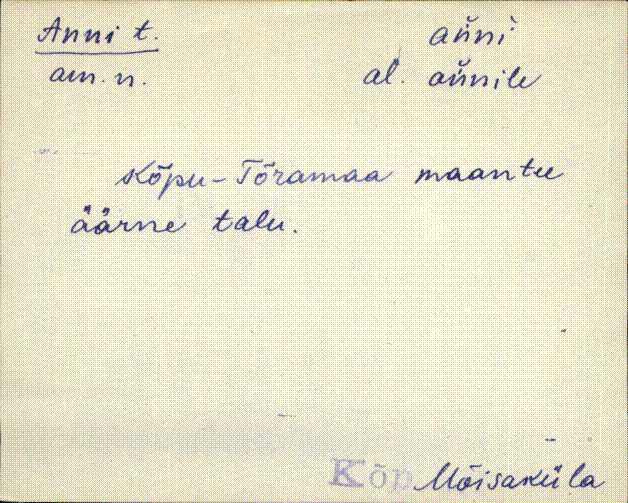 Anni t. ańni
am. n. al. ańnile
Kõpu-Tõramaa maantee
äärne talu.
Kõp Mõisaküla